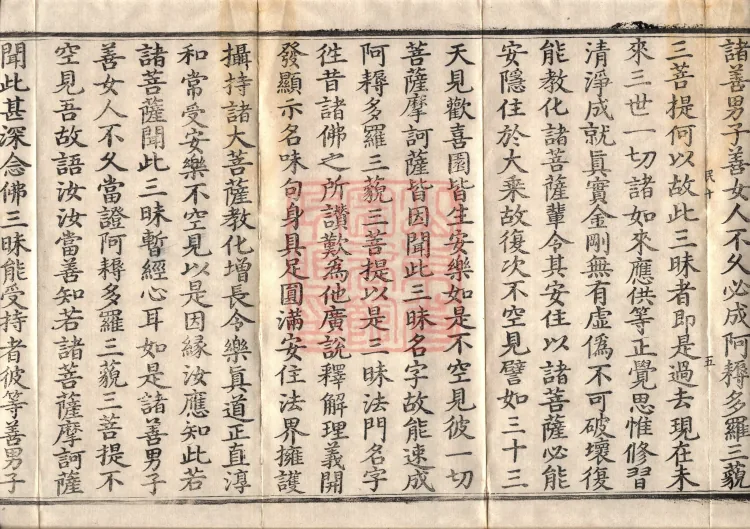 諸善男子善女人不久必成阿耨多羅三藐
三菩提何以故此三昧者即是過去現在未
來三世一切諸如來應供等正覺思惟修習
清淨成就眞實金剛無有虛僞不可破壞復
能教化諸菩薩輩令其安住以諸菩薩必能
安隱住於大乘故復次不空見譬如三十三
天見歡喜園皆生安樂如是不空見彼一切
菩薩摩訶薩皆因聞此三昧名字故能速成
阿耨多羅三藐三菩提以是三昧法門名字
徃昔諸佛之所讚歎爲他廣說釋解理義開
發顯示名味句身具足圓滿安住法界擁護
攝持諸大菩薩教化增長令樂眞道正直淳
和常受安樂不空見以是因緣汝應知此若
諸菩薩聞此三昧暫經心耳如是諸善男子
善女人不久當證阿耨多羅三藐三菩提不
空見吾故語汝汝當善知若諸菩薩摩訶薩
聞此甚深念佛三昧能受持者彼等善男子
五